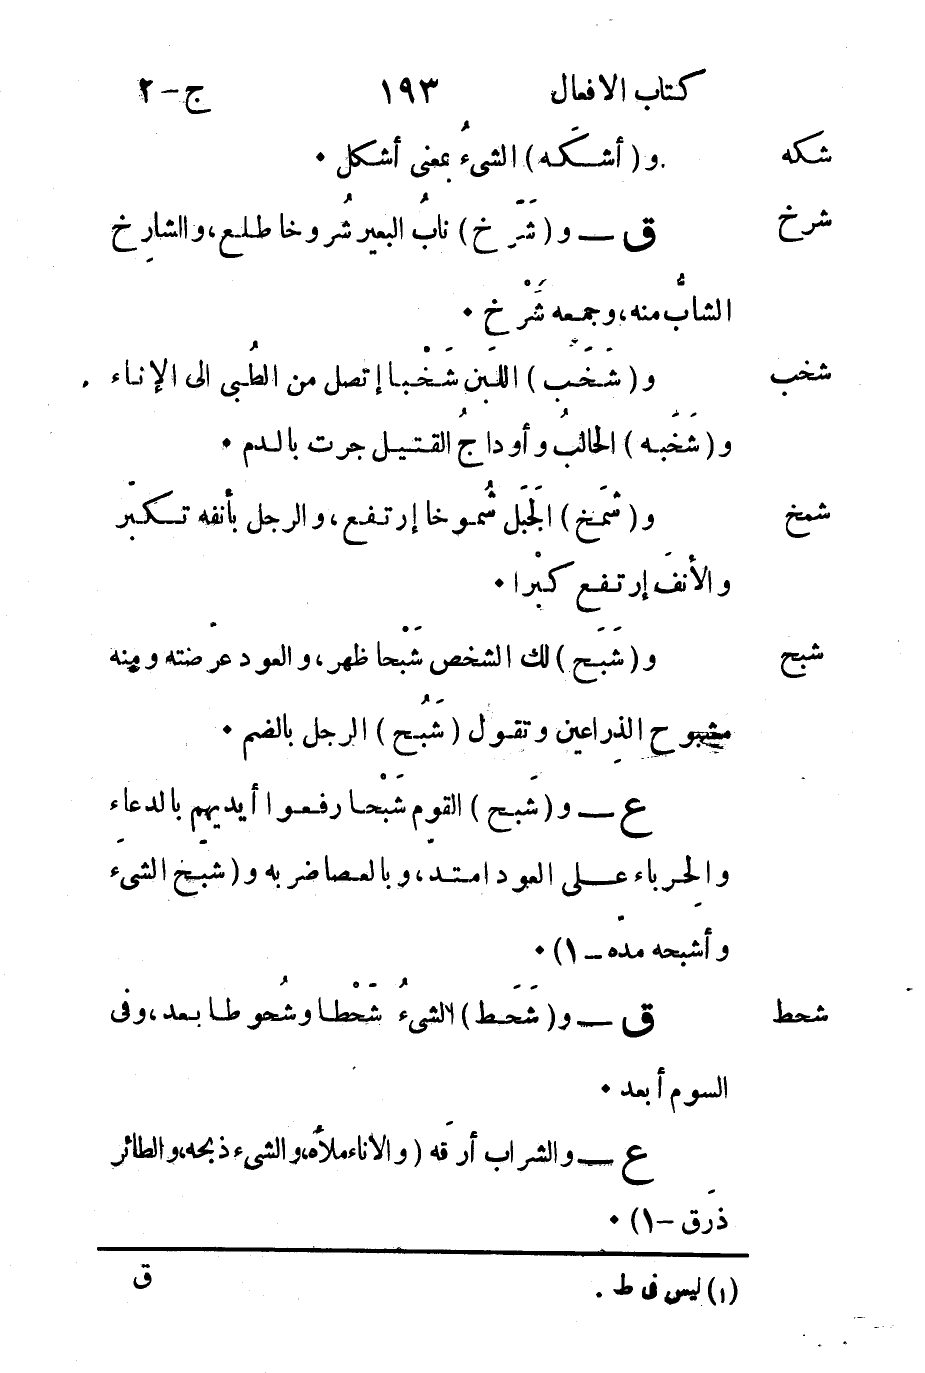 كتاب الافعال ١٩٣ ج - ٢
شكه و ( أشكَه ) الشىءُ بمعنى أشكل •
شرخ ق — و ( شَرَّخ ) نابُ البعير شُروخا طلع، والشارِخ
الشابُّ منه، وجمعه شَرْخ •
شخب و ( شَخَب ) اللبَن شَخْبا إتصل من الطُبى الى الإناء .
و ( شَخَبه ) الحالبُ وأوداجُ القتيل جرت بالدم •
شمخ و ( شَمَخ ) الَجَبَل شُموخا إرتفع، والرجل بأنفه تكبّر
والأنفَ إرتفع كبْرا •
شبح و ( شَبَح ) لك الشخص شَبْحا ظهر، والعود عرّضته ومنه
مشبوح الذِراعين وتقول ( شَبُح ) الرجل بالضم •
ع — و ( شَبح ) القوم شَبْحا رفعوا أيديهم بالدعاء
والحِرباء على العود امتدّ، وبالعصا ضربه و ( شبّح الشىءَ
وأشبحه مدّه - ١ ) •
شحط ق — و ( شَحَط ) الشىءُ شَحْطا وشُحوطا بعد، وفى
السوم أبعد •
ع — والشراب أرَقه ( والاناء ملأه، والشىء ذبحه، والطائر
ذَرق - ١ ) •
(١) ليس فى ط . ق